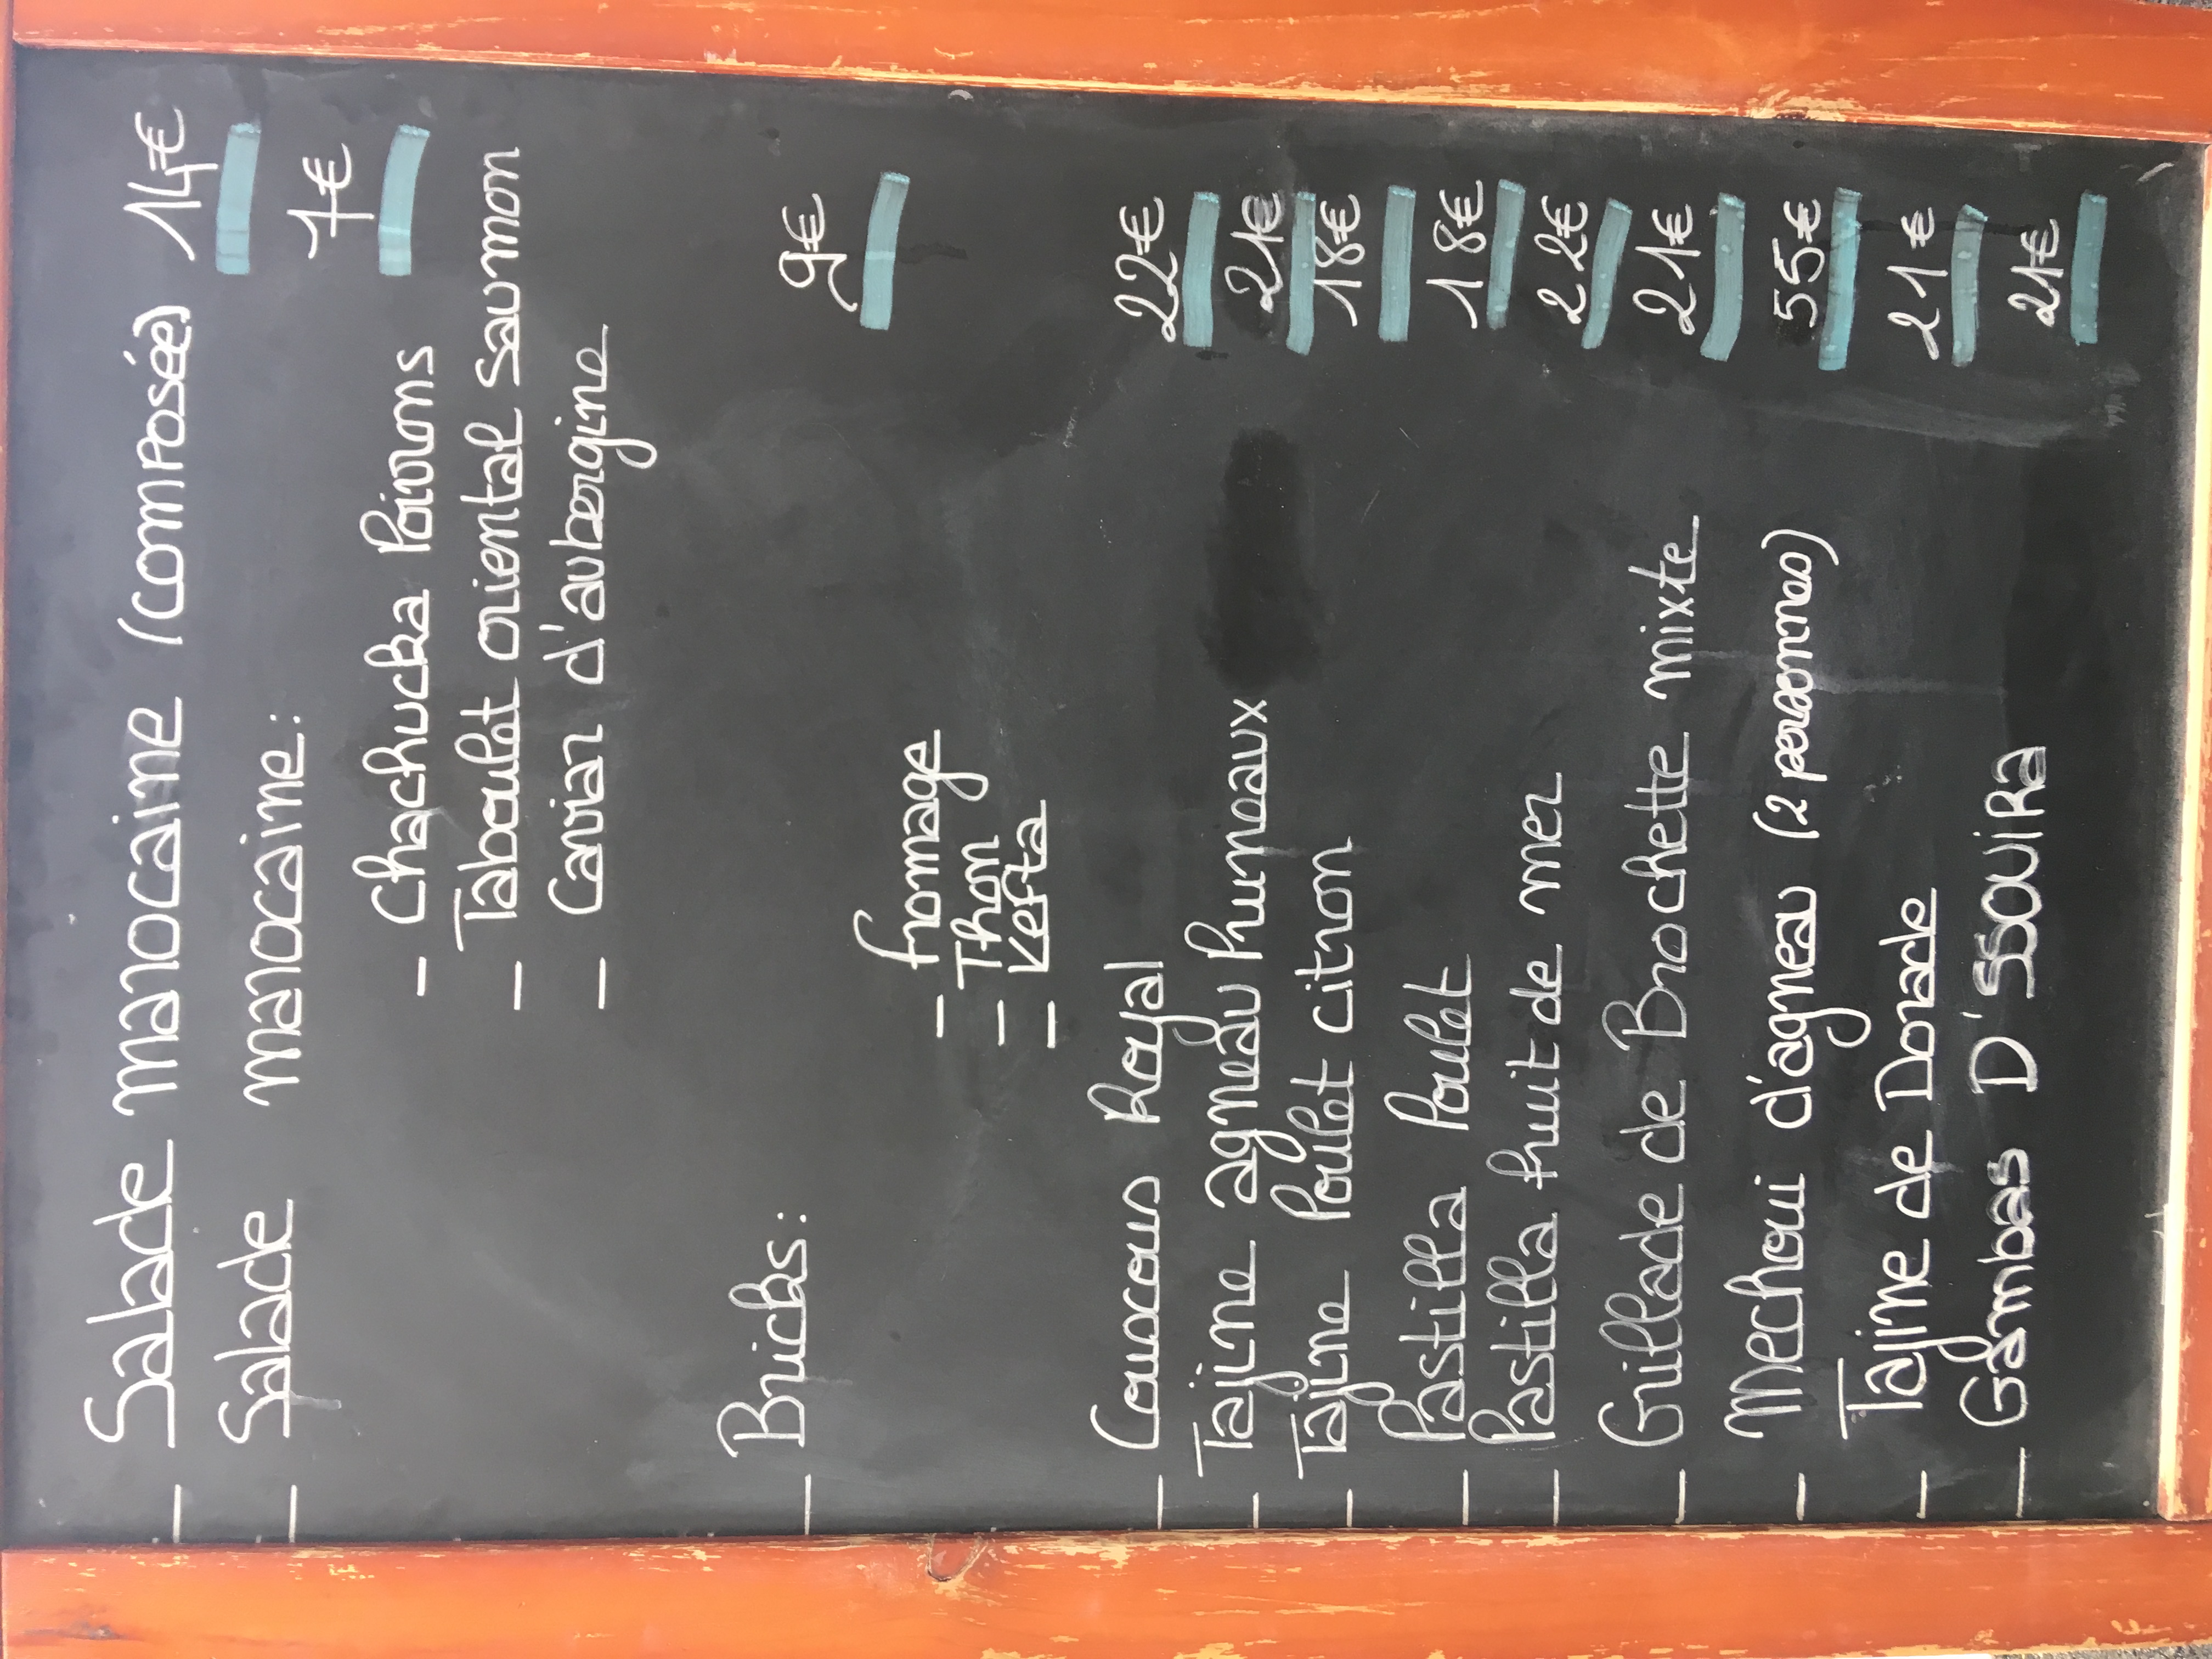 - Salade marocaine (composée) 14€
- Salade marocaine: 7€
- Chachucka Poivrons
- Taboulet oriental saumon
- Caviar d'aubergine
- Bricks: 9€
- fromage
- Thon
- Kefta
- Couscous Royal 22€
- Tajine agneau Pruneaux 21€
- Tajine Poulet citron 18€
- Pastilla Poulet 18€
- Pastilla fruit de mer 22€
- Grillade de Brochette mixte 21€
- Mechoui d'agneau (2 personnes) 55€
- Tajine de Dorade 21€
- Gambas D'SSOUIRA 21€